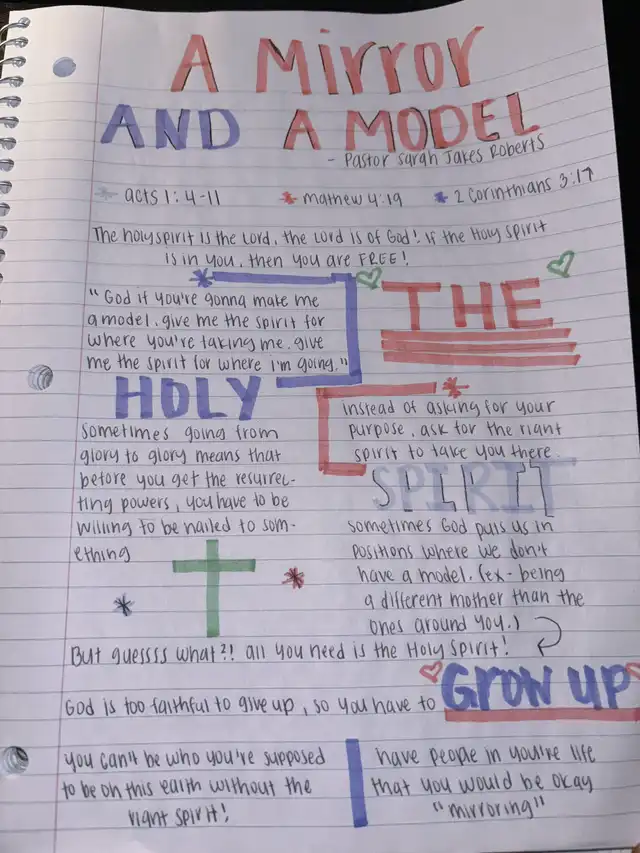 A Mirror
AND A MODEL
- Pastor Sarah Jakes Roberts
acts 1:4-11
mathew 4:19
2 Corinthians 3:17
The holyspirit is the Lord, the Lord is of God! if the Holy Spirit
is in you, then you are FREE!
"God if you're gonna make me
a model, give me the spirit for
where you're taking me. give
me the spirit for where i'm going."
THE
HOLY
instead of asking for your
purpose, ask for the right
spirit to take you there.
sometimes going from
glory to glory means that
before you get the resurrec-
ting powers, you have to be
willing to be nailed to som-
ething
SPIRIT
sometimes God puts us in
positions where we don't
have a model. (ex- being
a different mother than the
ones around you.)
But guessss what?! all you need is the Holy Spirit!
God is too faithful to give up, so you have to GROW UP
you can't be who you're supposed
to be on this earth without the
right spirit!
have people in you're life
that you would be okay
"mirroring"